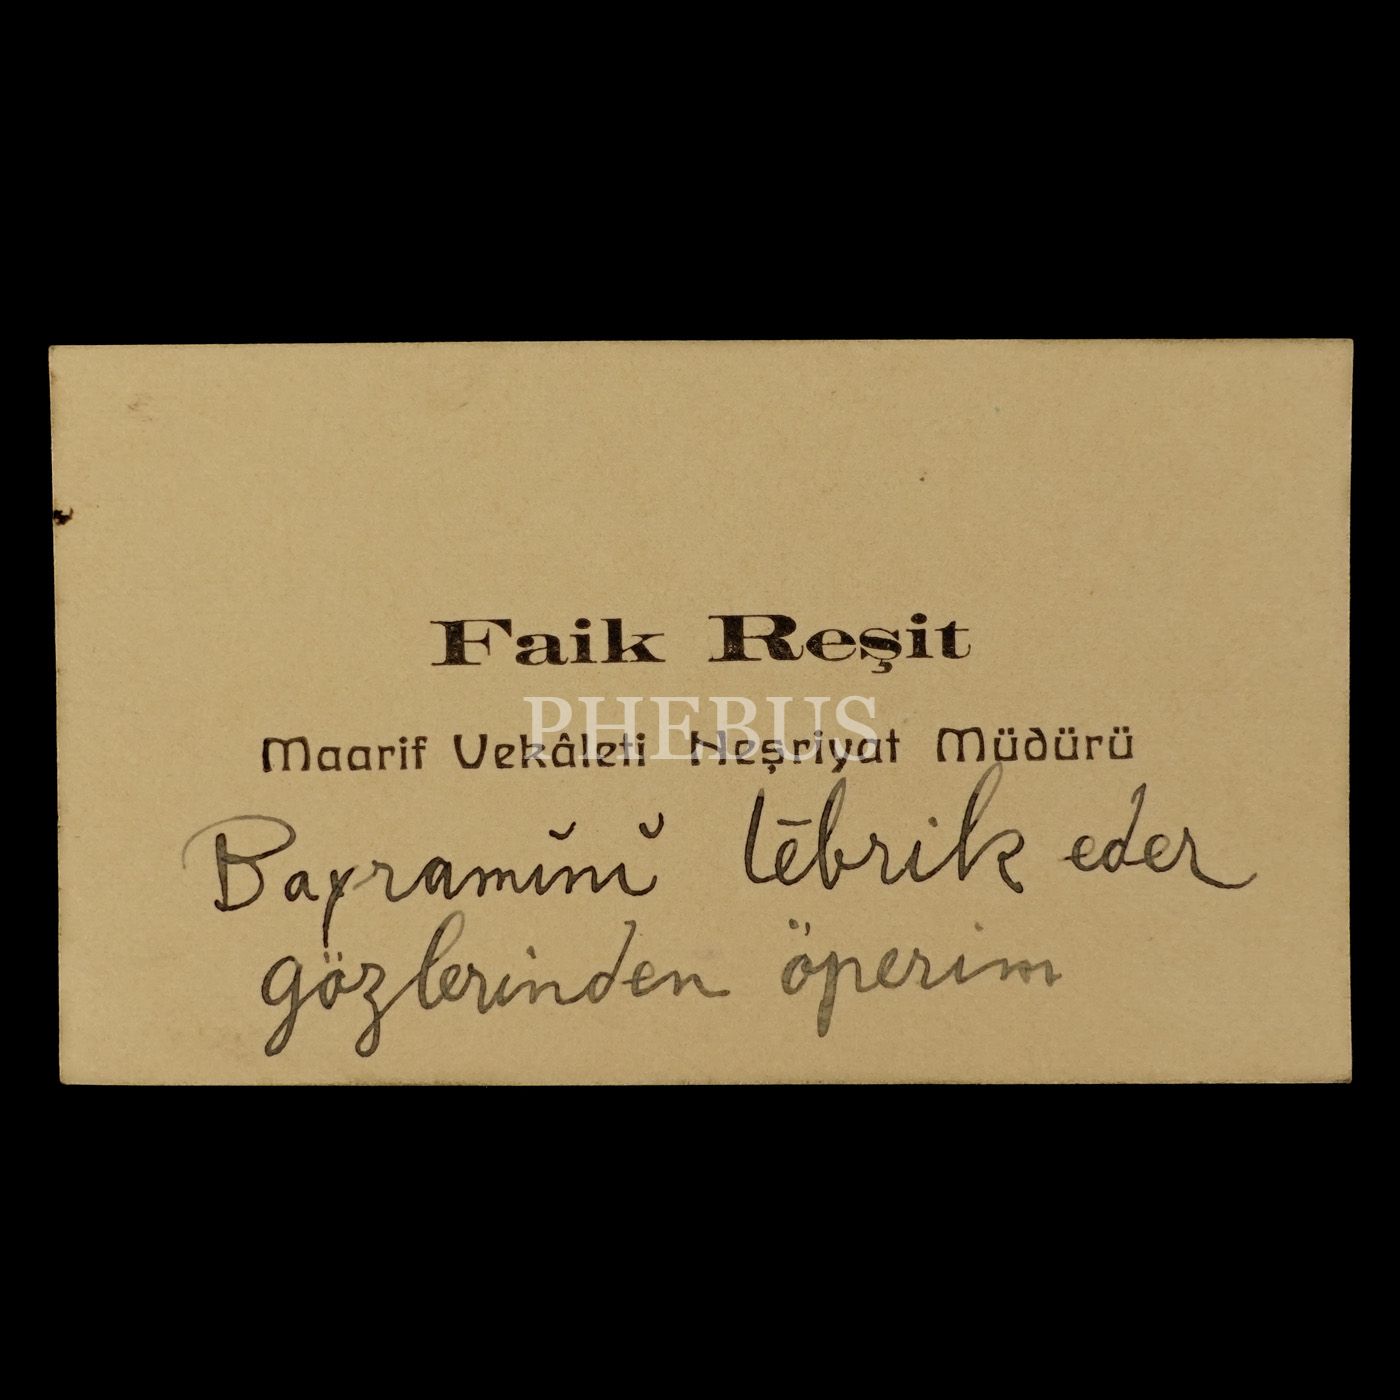 Faik Reşit
PHEBUS
Maarif Vekâleti Neşriyat Müdürü
Bayramĭnĭ tēbrik eder
gözlerinden öperim